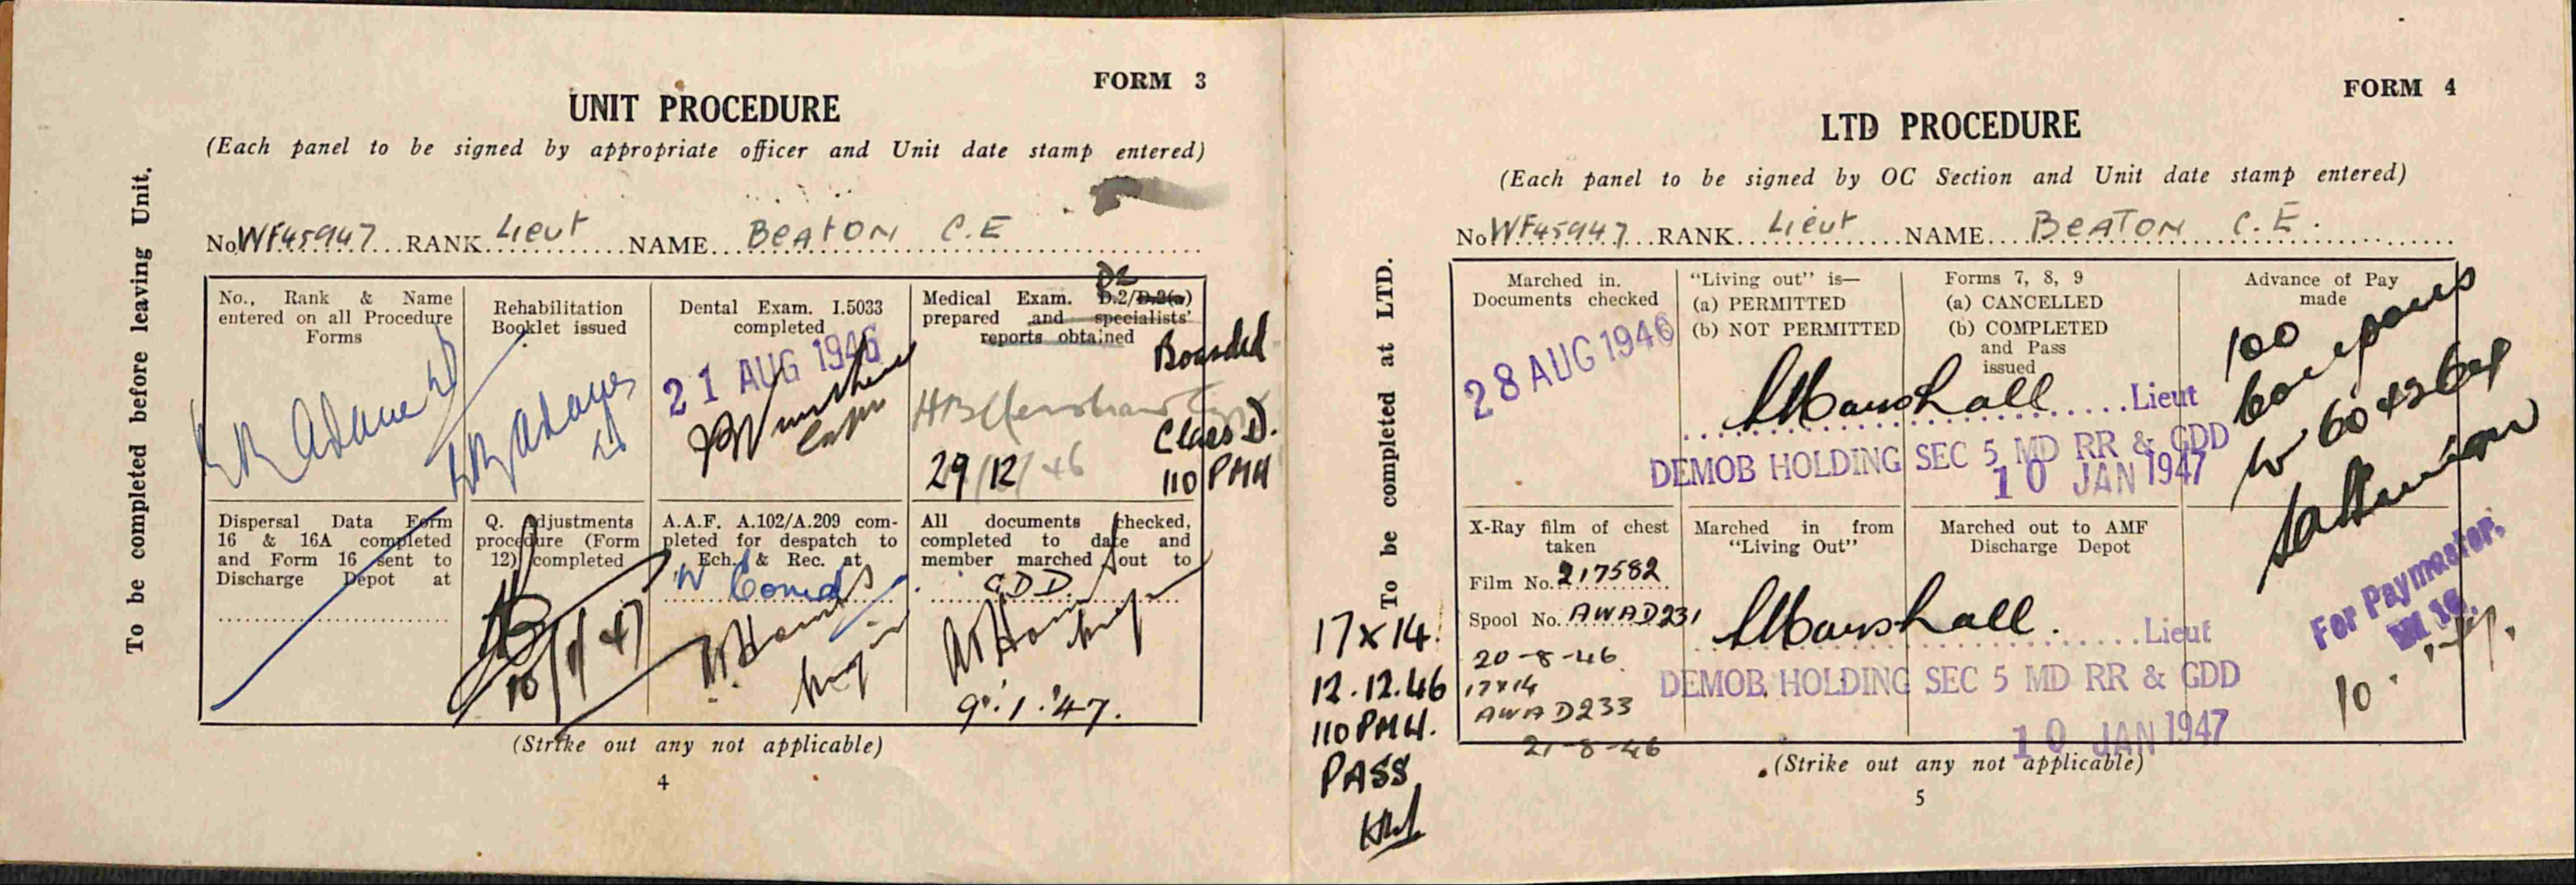 FORM 3
UNIT PROCEDURE
(Each panel to be signed by appropriate officer and Unit date stamp entered)
To be completed before leaving Unit.
No WF45947 RANK Lieut NAME BEATON C.E
No., Rank & Name
entered on all Procedure
Forms
Rehabilitation
Booklet issued
Dental Exam. I.5033
completed
21 AUG 1946
Capt
D2
Medical Exam. D.2/D.2(a)
prepared and specialists'
reports obtained
Boarded
Class D.
29/12/46
110 PMH
Dispersal Data Form
16 & 16A completed
and Form 16 sent to
Discharge Depot at
Q. Adjustments
procedure (Form
12) completed
10/1/47
A.A.F. A.102/A.209 com-
pleted for despatch to
Ech. & Rec. at
W Comd
All documents checked,
completed to date and
member marched out to
GDD.
9.1.'47.
(Strike out any not applicable)
4
FORM 4
LTD PROCEDURE
(Each panel to be signed by OC Section and Unit date stamp entered)
To be completed at LTD.
No WF45947 RANK Lieut NAME BEATON C.E.
Marched in.
Documents checked
28 AUG 1946
"Living out" is—
(a) PERMITTED
(b) NOT PERMITTED
Forms 7, 8, 9
(a) CANCELLED
(b) COMPLETED
and Pass
issued
Marshall Lieut
DEMOB HOLDING SEC 5 MD RR & GDD
10 JAN 1947
Advance of Pay
made
100
coupons
For Paymaster,
10
X-Ray film of chest
taken
Film No. 217582
Spool No. AWAD231
20-8-46
17x14
AWAD233
21-8-46
Marched in from
"Living Out"
Marched out to AMF
Discharge Depot
Marshall. Lieut
DEMOB HOLDING SEC 5 MD RR & GDD
10 JAN 1947
17x14.
12.12.46
110 PMH.
PASS
(Strike out any not applicable)
5